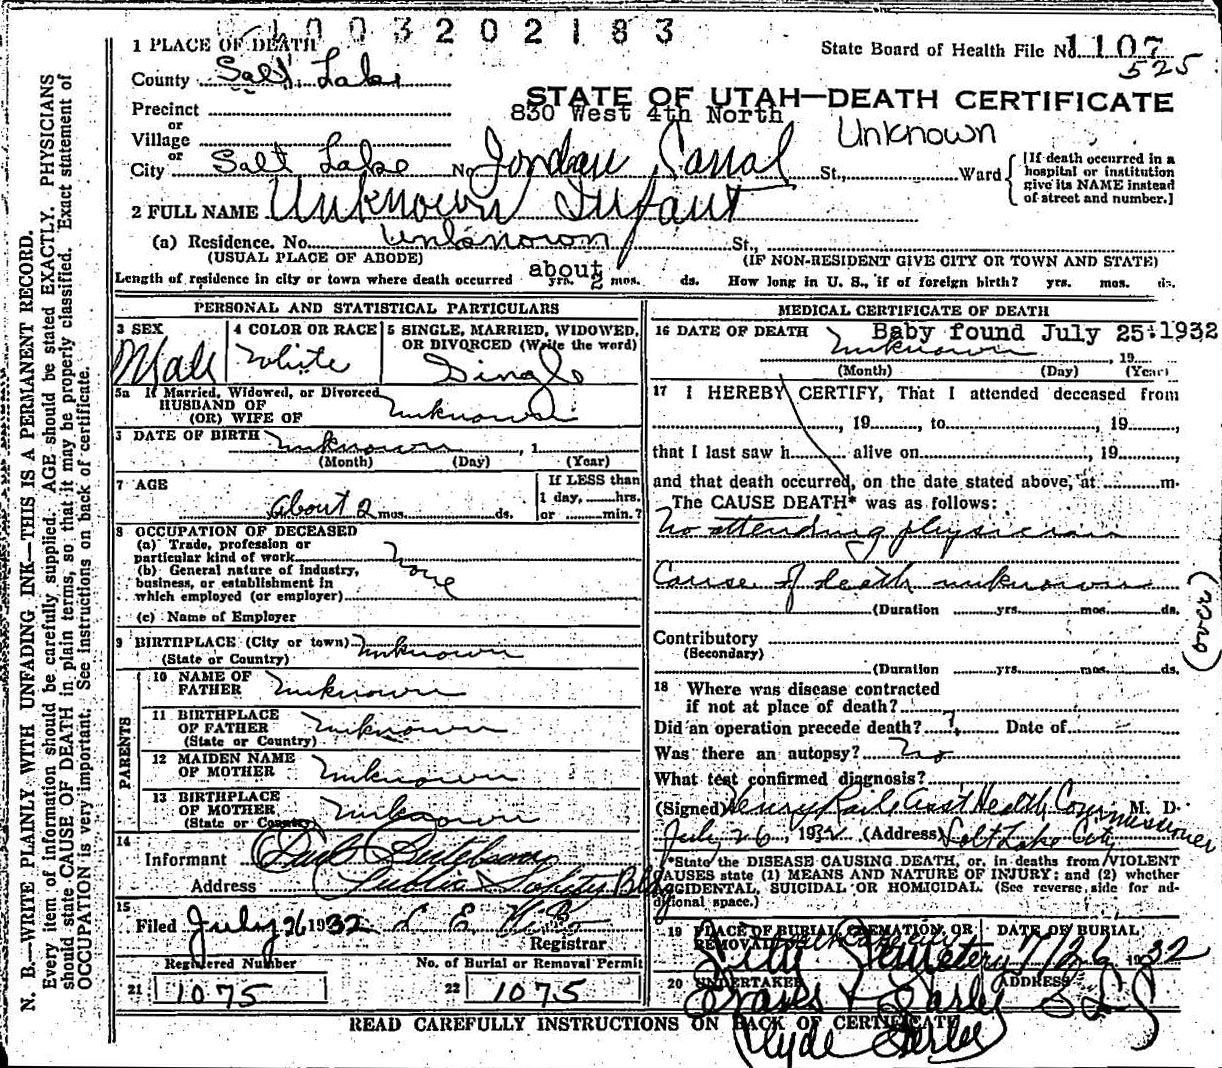 1003202183
State Board of Health File No. 1107
525
1 PLACE OF DEATH
County Salt Lake
STATE OF UTAH—DEATH CERTIFICATE
Precinct
830 West 4th North
or
Village
Unknown
or
City Salt Lake No. Jordan Canal St., Ward
[If death occurred in a
hospital or institution
give its NAME instead
of street and number.]
2 FULL NAME Unknown Infant
(a) Residence. No. Unknown St.,
(USUAL PLACE OF ABODE) (IF NON-RESIDENT GIVE CITY OR TOWN AND STATE)
Length of residence in city or town where death occurred about yrs. 2 mos. ds. How long in U. S., if of foreign birth? yrs. mos. ds.
PERSONAL AND STATISTICAL PARTICULARS
3 SEX
Male
4 COLOR OR RACE
White
5 SINGLE, MARRIED, WIDOWED,
OR DIVORCED (Write the word)
Single
5a If Married, Widowed, or Divorced
HUSBAND OF
(OR) WIFE OF unknown
DATE OF BIRTH unknown , 1
(Month) (Day) (Year)
7 AGE
About 2 mos. ds.
If LESS than
1 day, hrs.
or min.?
8 OCCUPATION OF DECEASED
(a) Trade, profession or
particular kind of work
(b) General nature of industry,
business, or establishment in
which employed (or employer)
none
(c) Name of Employer
9 BIRTHPLACE (City or town) unknown
(State or Country)
PARENTS
10 NAME OF
FATHER unknown
11 BIRTHPLACE
OF FATHER unknown
(State or Country)
12 MAIDEN NAME
OF MOTHER unknown
13 BIRTHPLACE
OF MOTHER unknown
(State or Country)
14
Informant Paul
Address Public Safety Bldg
15
Filed July 26 1932
Registrar
Registered Number
21 1075
No. of Burial or Removal Permit
22 1075
MEDICAL CERTIFICATE OF DEATH
16 DATE OF DEATH Baby found July 25:1932
unknown , 19
(Month) (Day) (Year)
17 I HEREBY CERTIFY, That I attended deceased from
, 19 , to , 19 ,
that I last saw h alive on , 19 ,
and that death occurred, on the date stated above, at m.
The CAUSE DEATH* was as follows:
No attending physician
Cause of death unknown
(Duration yrs. mos. ds.
Contributory
(Secondary)
(Duration yrs. mos. ds.
(over)
18 Where was disease contracted
if not at place of death?
Did an operation precede death? Date of
Was there an autopsy? No
What test confirmed diagnosis?
(Signed) Henry Raile Asst Health Commissioner M. D.
July 26, 1932 (Address) Salt Lake City
*State the DISEASE CAUSING DEATH, or, in deaths from VIOLENT
CAUSES state (1) MEANS AND NATURE OF INJURY: and (2) whether
ACCIDENTAL, SUICIDAL OR HOMICIDAL. (See reverse side for ad-
ditional space.)
19 PLACE OF BURIAL, CREMATION, OR
REMOVAL
City Cemetery
DATE OF BURIAL
7/26 1932
20 UNDERTAKER
Evans & Early
ADDRESS
S L C
Clyde Early
READ CAREFULLY INSTRUCTIONS ON BACK OF CERTIFICATE
N. B.—WRITE PLAINLY WITH UNFADING INK—THIS IS A PERMANENT RECORD.
Every item of information should be carefully supplied. AGE should be stated EXACTLY. PHYSICIANS
should state CAUSE OF DEATH in plain terms, so that it may be properly classified. Exact statement of
OCCUPATION is very important. See instructions on back of certificate.